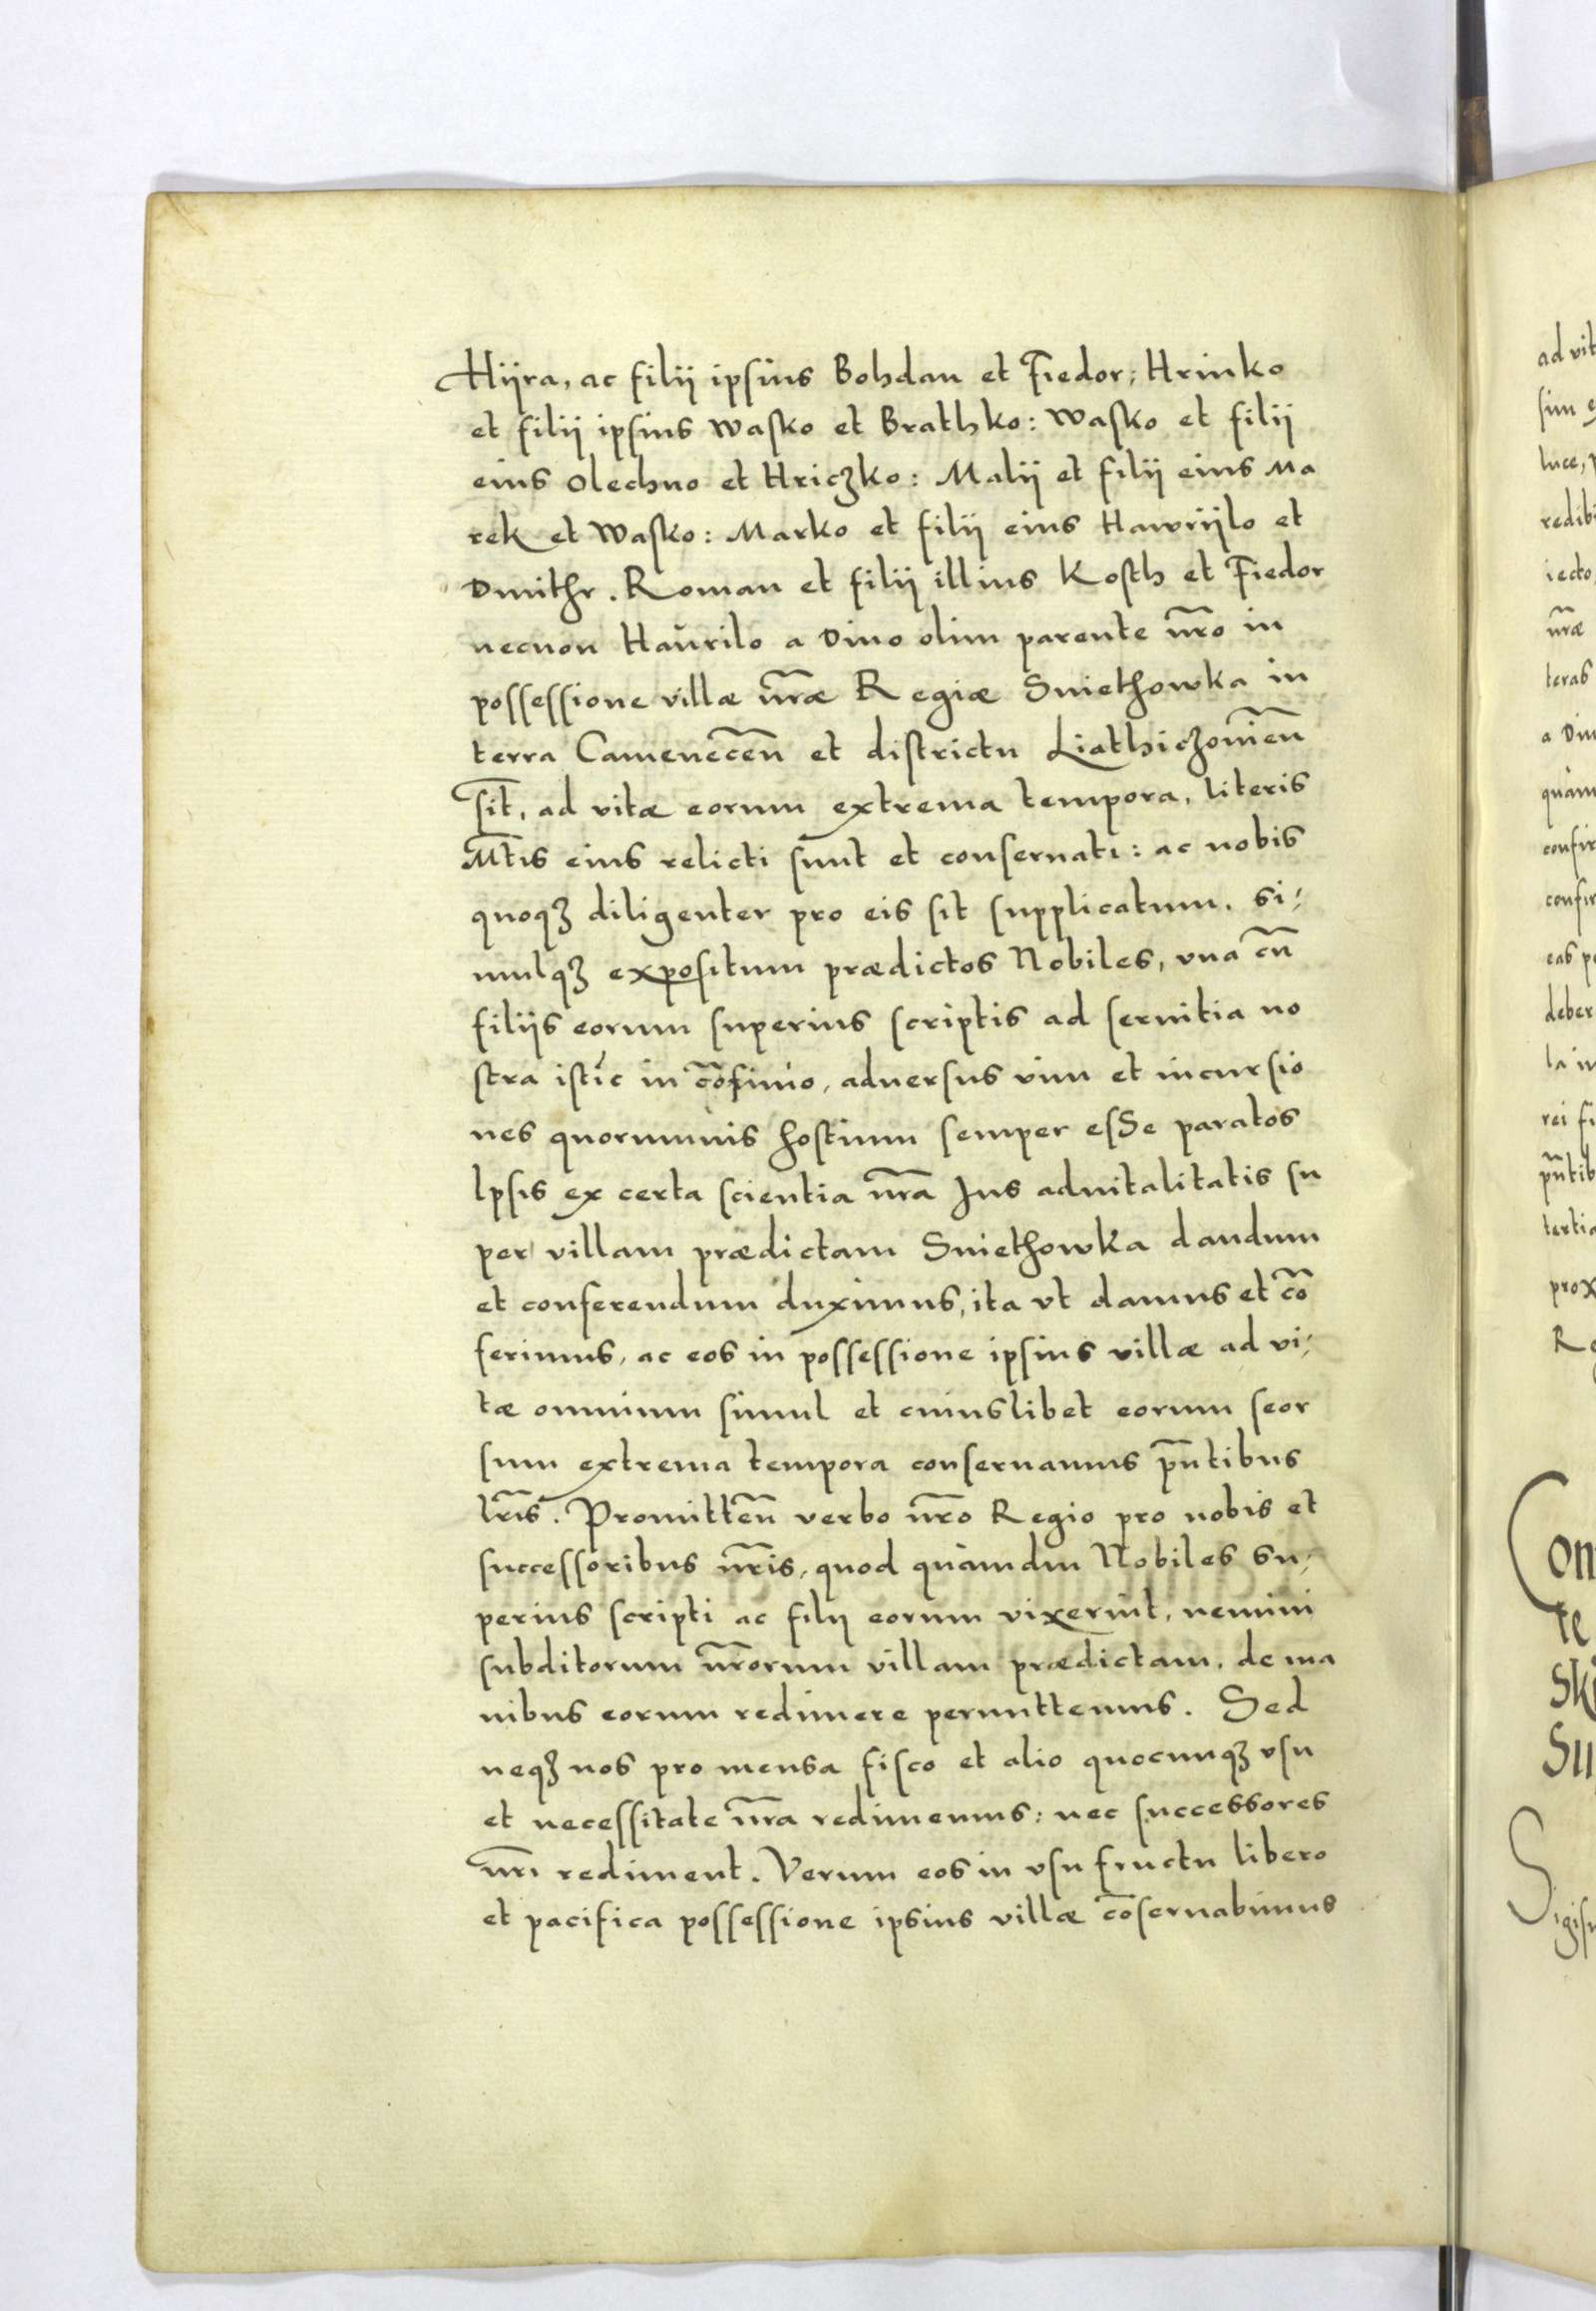 Hijra, ac filij ipsius Bohdan et Fiedor; Hrinko
et filij ipsius Wasko et Brathko: Wasko et filij
eius Olechno et Hriczko: Malij et filij eius Ma
rek et Wasko: Marko et filij eius Hawrijlo et
Dmithr. Roman et filij illius Kosth et Fiedor
necnon Haurilo a Diuo olim parente nr̃o in
possessione villæ nr̃æ Regiæ Sniethowka in
terra Camenecen̄ et districtu Liathiczouien̄
sit̄, ad vitæ eorum extrema tempora, literis
Mt̄is eius relicti sunt et conseruati: ac nobis
quoqꝫ diligenter pro eis sit supplicatum. si⸗
mulqꝫ expositum prædictos Nobiles, vna cū
filijs eorum superius scriptis ad seruitia no
stra istic in cōfinio, aduersus vim et incursio
nes quorumuis hostium semper esse paratos
Ipsis ex certa scientia nr̃a Jus aduitalitatis su
per villam prædictam Sniethowka dandum
et conferendum duximus, ita vt damus et cō
ferimus, ac eos in possessione ipsius villæ ad vi⸗
tæ omnium simul et cuiuslibet eorum seor
sum extrema tempora conseruamus pn̄tibus
lr̃is. Promitten̄ verbo nr̃o Regio pro nobis et
successoribus nr̃is, quod quàmdiu Nobiles su⸗
perius scripti ac filij eorum vixerint, nemini
subditorum nr̃orum villam prædictam, de ma
nibus eorum redimere permittemus. Sed
neqꝫ nos pro mensa fisco et alio quocunqꝫ vsu
et necessitate nr̃a redimemus: nec successores
nr̃i rediment. Verum eos in vsu fructu libero
et pacifica possessione ipsius villæ cōseruabimus
ad vit
sim e
luce,
redib
iecto
nr̃æ
teras
a Diu
quàm
confir
confir
eas p
deber
la in
rei fi
pn̄tib
tertia
prox
R
Con
te
Ski
Su
Sigis